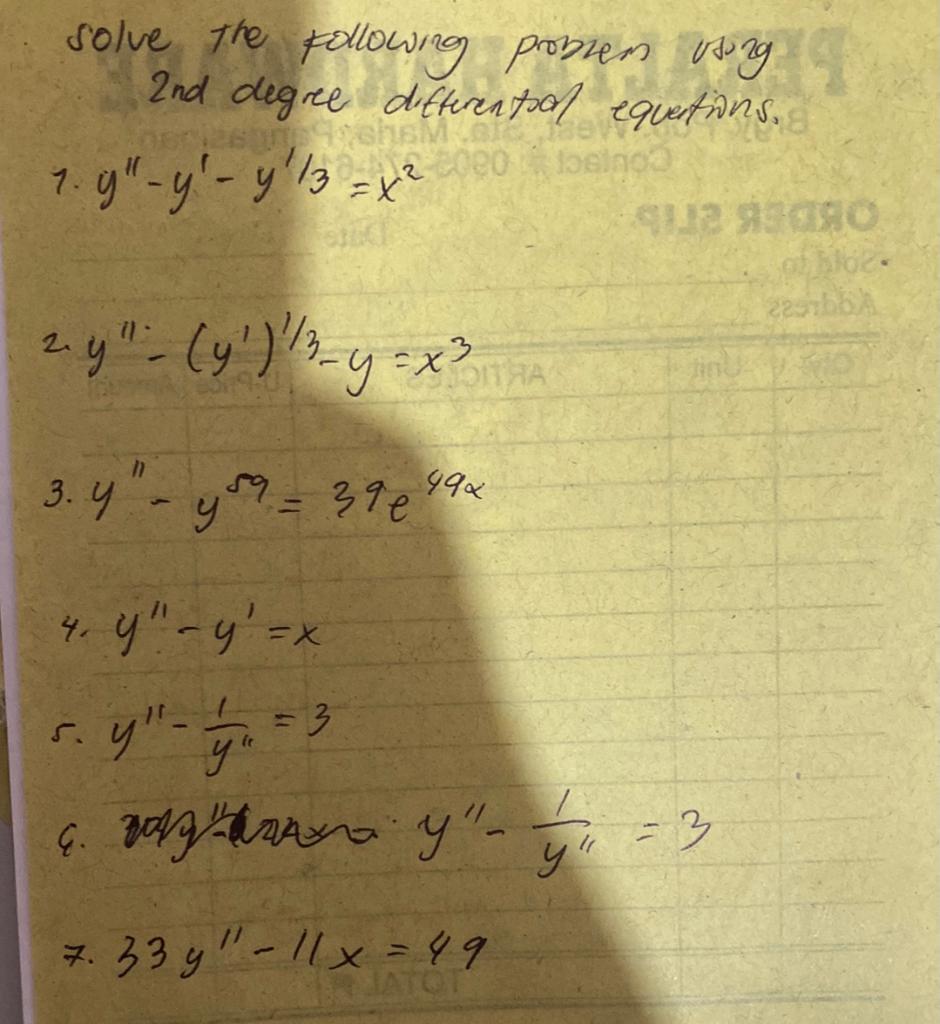 solve the following problem using
2nd degree differential equations.
1. y'' - y' - y'/3 = x²
2. y'' - (y')^1/3 - y = x³
3. y'' - y^59 = 39e^49x
4. y'' - y' = x
5. y'' - 1/y'' = 3
6. y'' - 1/y'' = 3
7. 33y'' - 11x = 49
PERALTA HARDWARE
Brgy. Pob. West, Sta. Maria, Pangasinan
Contact #: 0906-274-6
ORDER SLIP
Date
Sold to
Address
Qty Unit ARTICLES U-Price Amount
TOTAL ₱